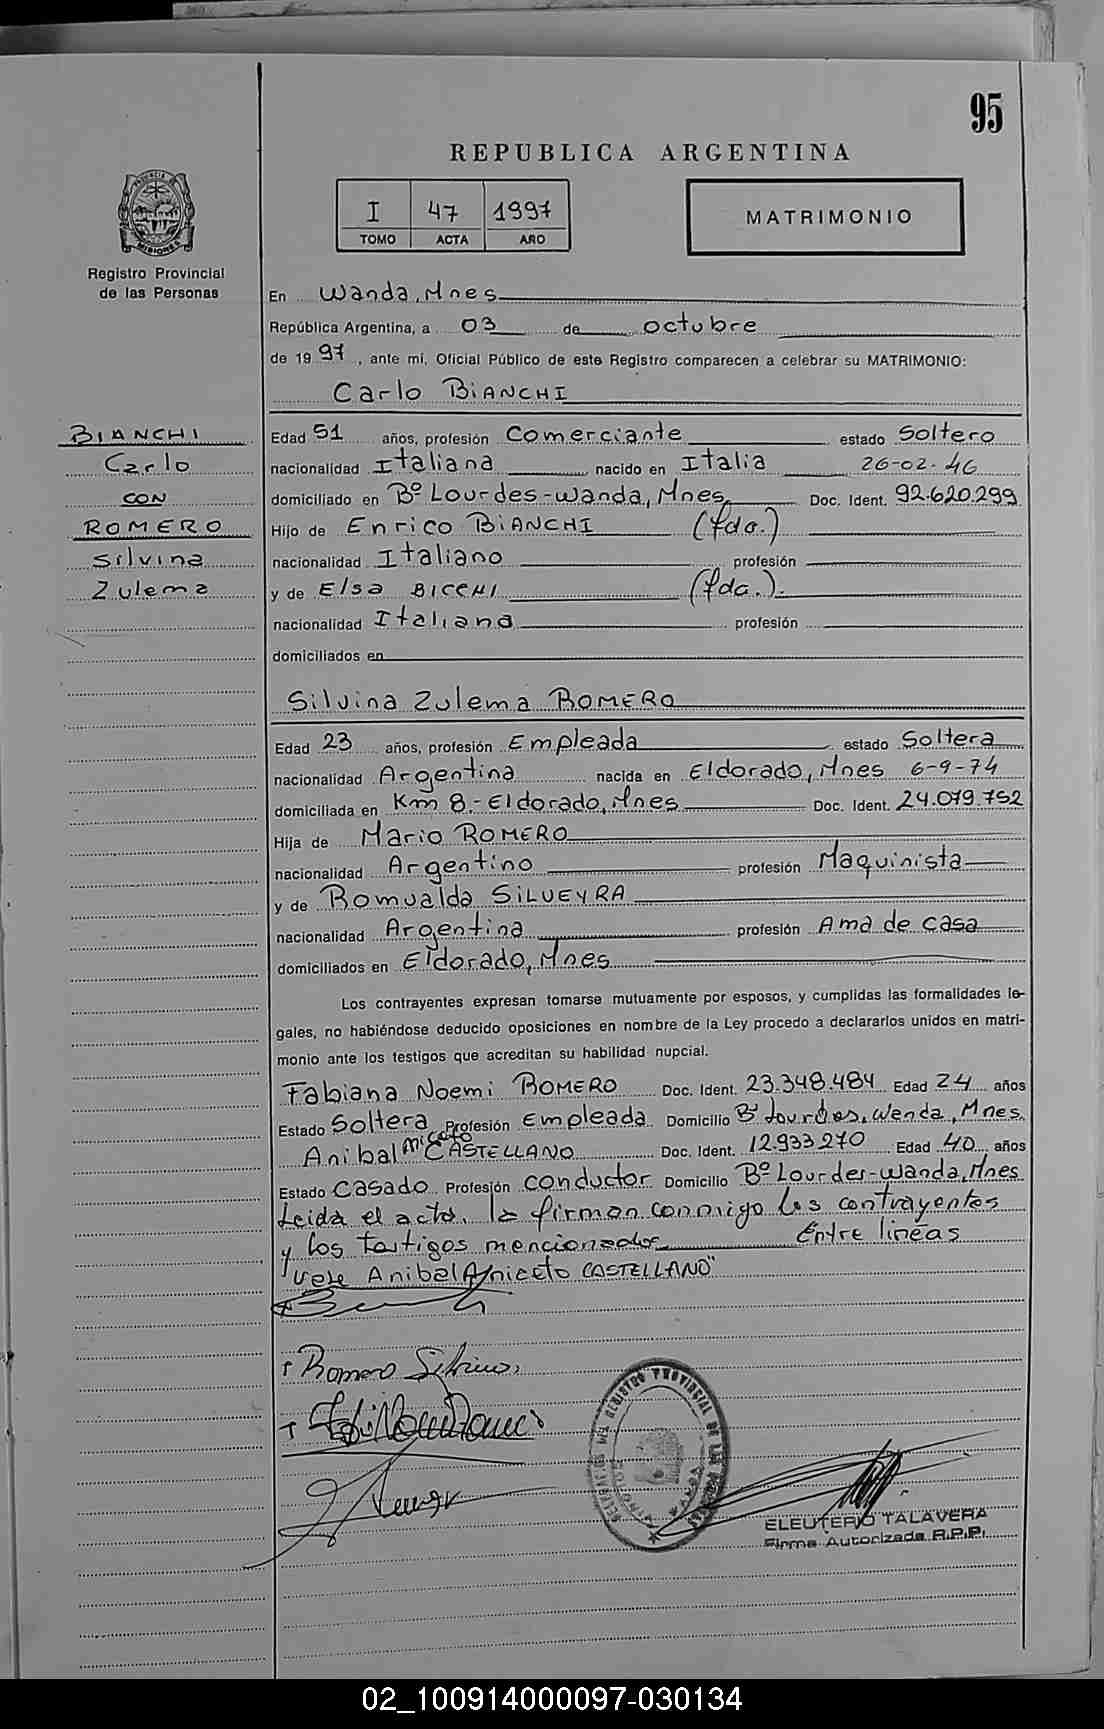 95
REPUBLICA ARGENTINA
I 47 1997
TOMO ACTA AÑO
MATRIMONIO
Registro Provincial
de las Personas
En Wanda, Mnes
República Argentina, a 03 de octubre
de 1997, ante mí, Oficial Público de este Registro comparecen a celebrar su MATRIMONIO:
Carlo BiANCHI
BIANCHI
Carlo
CON
ROMERO
Silvina
Zulema
Edad 51 años, profesión Comerciante estado Soltero
nacionalidad Italiana nacido en Italia 26-02-46
domiciliado en Bº Lourdes-Wanda, Mnes Doc. Ident. 92.620.299
Hijo de Enrico BiANCHI (fdo.)
nacionalidad Italiano profesión
y de Elsa BICCHI (fda.)
nacionalidad Italiana profesión
domiciliados en
Silvina Zulema ROMERO
Edad 23 años, profesión Empleada estado Soltera
nacionalidad Argentina nacida en Eldorado, Mnes 6-9-74
domiciliada en Km 8.- Eldorado, Mnes Doc. Ident. 24.079.752
Hija de Mario ROMERO
nacionalidad Argentino profesión Maquinista
y de Romualda SiLVEYRA
nacionalidad Argentina profesión Ama de casa
domiciliados en Eldorado, Mnes
Los contrayentes expresan tomarse mutuamente por esposos, y cumplidas las formalidades le-
gales, no habiéndose deducido oposiciones en nombre de la Ley procedo a declararlos unidos en matri-
monio ante los testigos que acreditan su habilidad nupcial.
Fabiana Noemi ROMERO Doc. Ident. 23.348.484 Edad 24 años
Estado Soltera Profesión Empleada Domicilio Bº Lourdes, Wanda, Mnes.
Anibal CASTELLANO Doc. Ident. 12.933.270 Edad 40 años
Estado Casado Profesión conductor Domicilio Bº Lourdes-Wanda, Mnes
Leida el acta, la firman conmigo los contrayentes
y los testigos mencionados Entre lineas
"Vale Anibal Aniceto CASTELLANO"
Romero Silvina
REGISTRO PROVINCIAL DE LAS PERSONAS
ELEUTERIO TALAVERA
Firma Autorizada R.P.P.
02_100914000097-030134